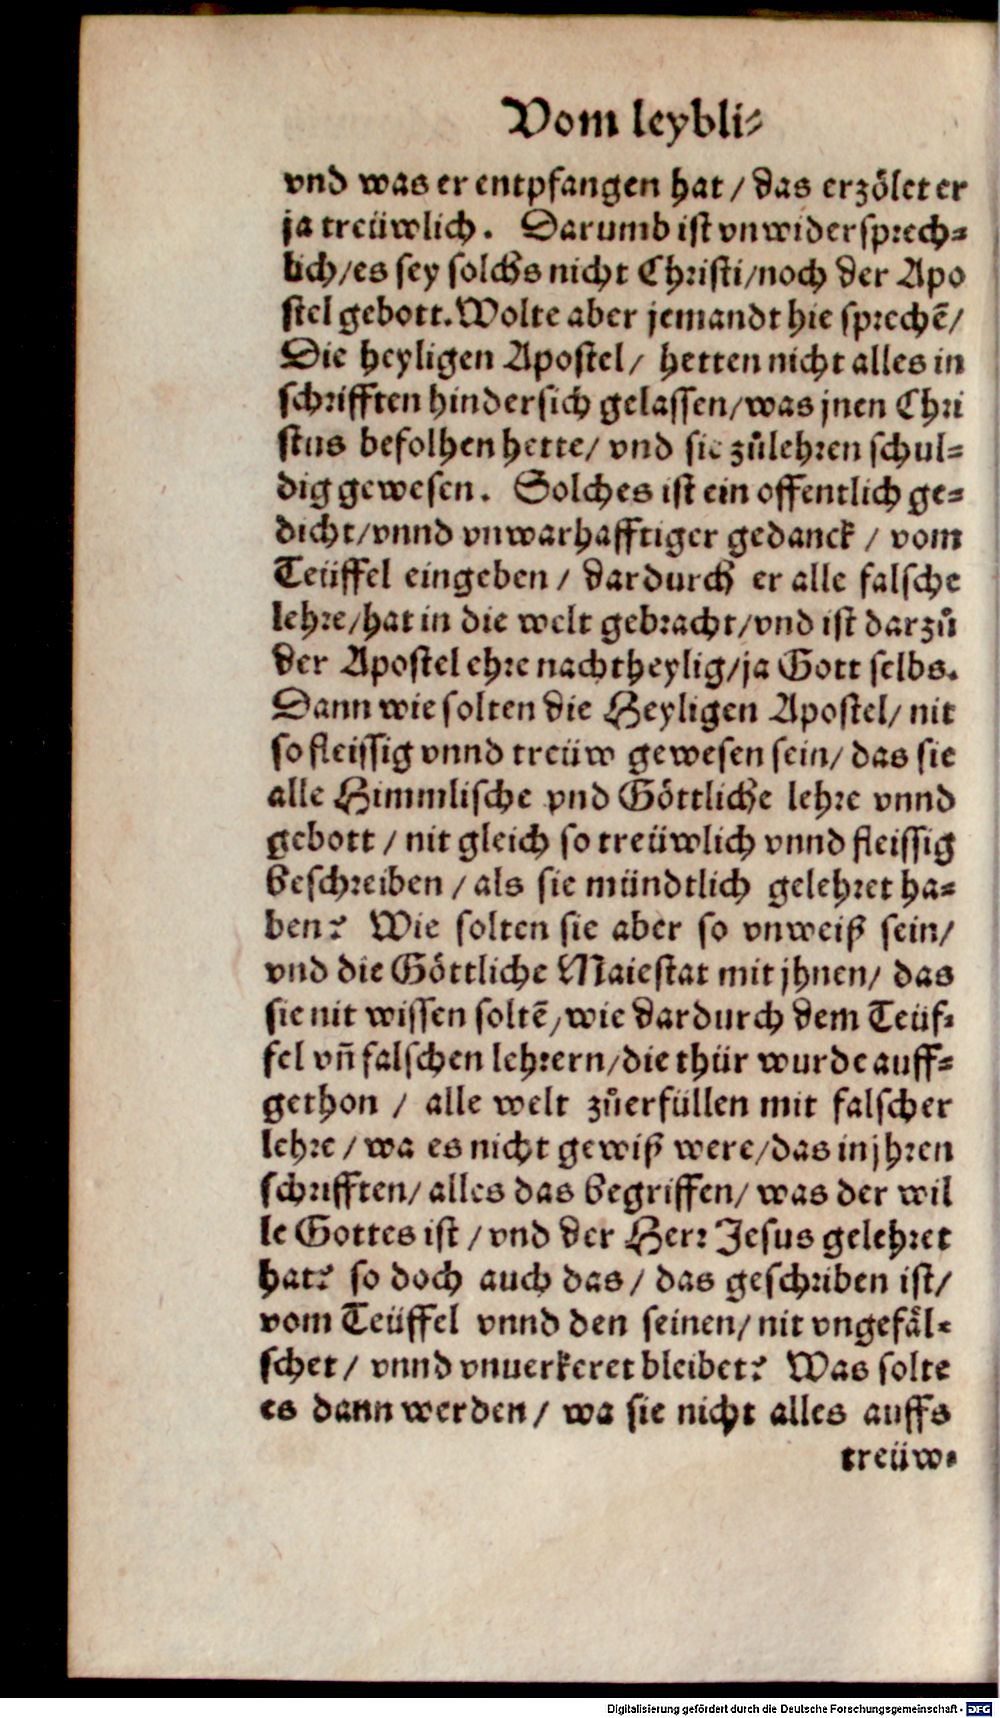 Vom leybli⸗
vnd was er entpfangen hat / das erzölet er
ja treüwlich. Darumb ist vnwidersprech⸗
lich/es sey solchs nicht Christi/noch der Apo
stel gebott. Wolte aber jemandt hie sprechē/
Die heyligen Apostel/ hetten nicht alles in
schrifften hinder sich gelassen/was jnen Chri
stus befolhen hette/ vnd sie zůlehren schul⸗
dig gewesen. Solches ist ein offentlich ge⸗
dicht/vnnd vnwarhafftiger gedanck / vom
Teüffel eingeben / dardurch er alle falsche
lehre/hat in die welt gebracht/vnd ist darzů
der Apostel ehre nachtheylig/ja Gott selbs.
Dann wie solten die Heyligen Apostel/ nit
so fleissig vnnd treüw gewesen sein/ das sie
alle Himmlische vnd Göttliche lehre vnnd
gebott / nit gleich so treüwlich vnnd fleissig
beschreiben / als sie mündtlich gelehret ha⸗
ben? Wie solten sie aber so vnweiß sein/
vnd die Göttliche Maiestat mit jhnen/ das
sie nit wissen soltē/wie dardurch dem Teüf⸗
fel vn̄ falschen lehrern/die thür wurde auff⸗
gethon / alle welt zůerfüllen mit falscher
lehre / wa es nicht gewiß were/das in jhren
schrifften/ alles das begriffen/ was der wil
le Gottes ist / vnd der Herr Jesus gelehret
hat? so doch auch das / das geschriben ist/
vom Teüffel vnnd den seinen/ nit vngefäl⸗
schet/ vnnd vnuerkeret bleibet? Was solte
es dann werden/ wa sie nicht alles auffs
treüw⸗
Digitalisierung gefördert durch die Deutsche Forschungsgemeinschaft - DFG